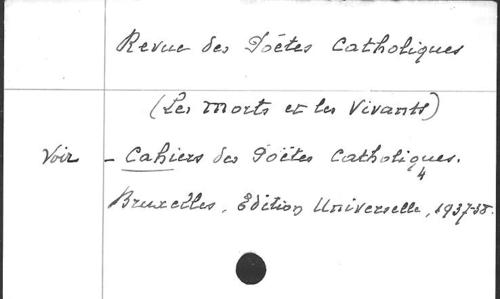 Revue des Poètes Catholiques
(Les Morts et les Vivants)
Voir - Cahiers des Poëtes Catholiques.
4
Bruxelles, Edition Universelle, 1937-38.